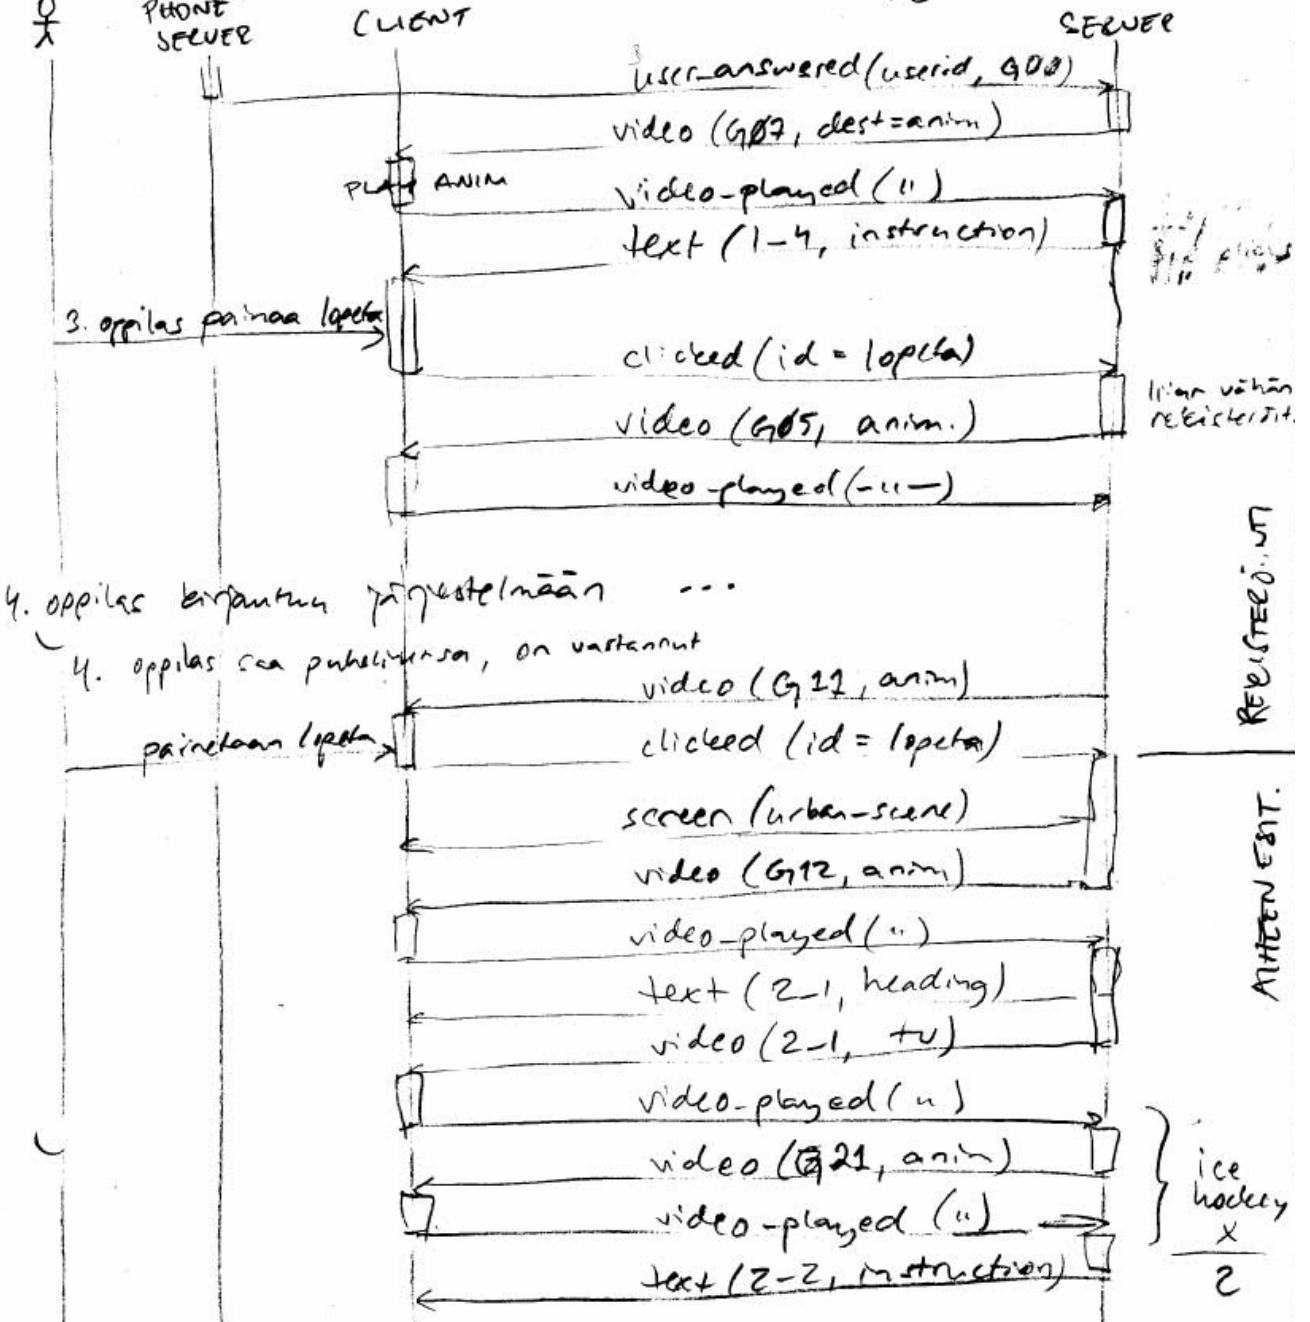 PHONE
SERVER
CLIENT
SERVER
user_answered(userid, G00)
video (G07, dest=anim)
PLAY ANIM
video-played(")
text (1-4, instruction)
3. oppilas painaa lopeta
clicked (id = lopeta)
liian vähän
rekisteröit.
video (G05, anim.)
video-played(-"-)
REKISTERÖINTI
4. oppilas kirjautuu järjestelmään ...
4. oppilas saa puhelimensa, on vastannut
video (G11, anim)
painetaan lopeta
clicked (id = lopeta)
screen (urban-scene)
AIHEEN ESIT.
video (G12, anim)
video-played(")
text (2-1, heading)
video (2-1, tv)
video-played(")
video (G21, anim)
ice
hockey
x
2
video-played (")
text (2-2, instruction)